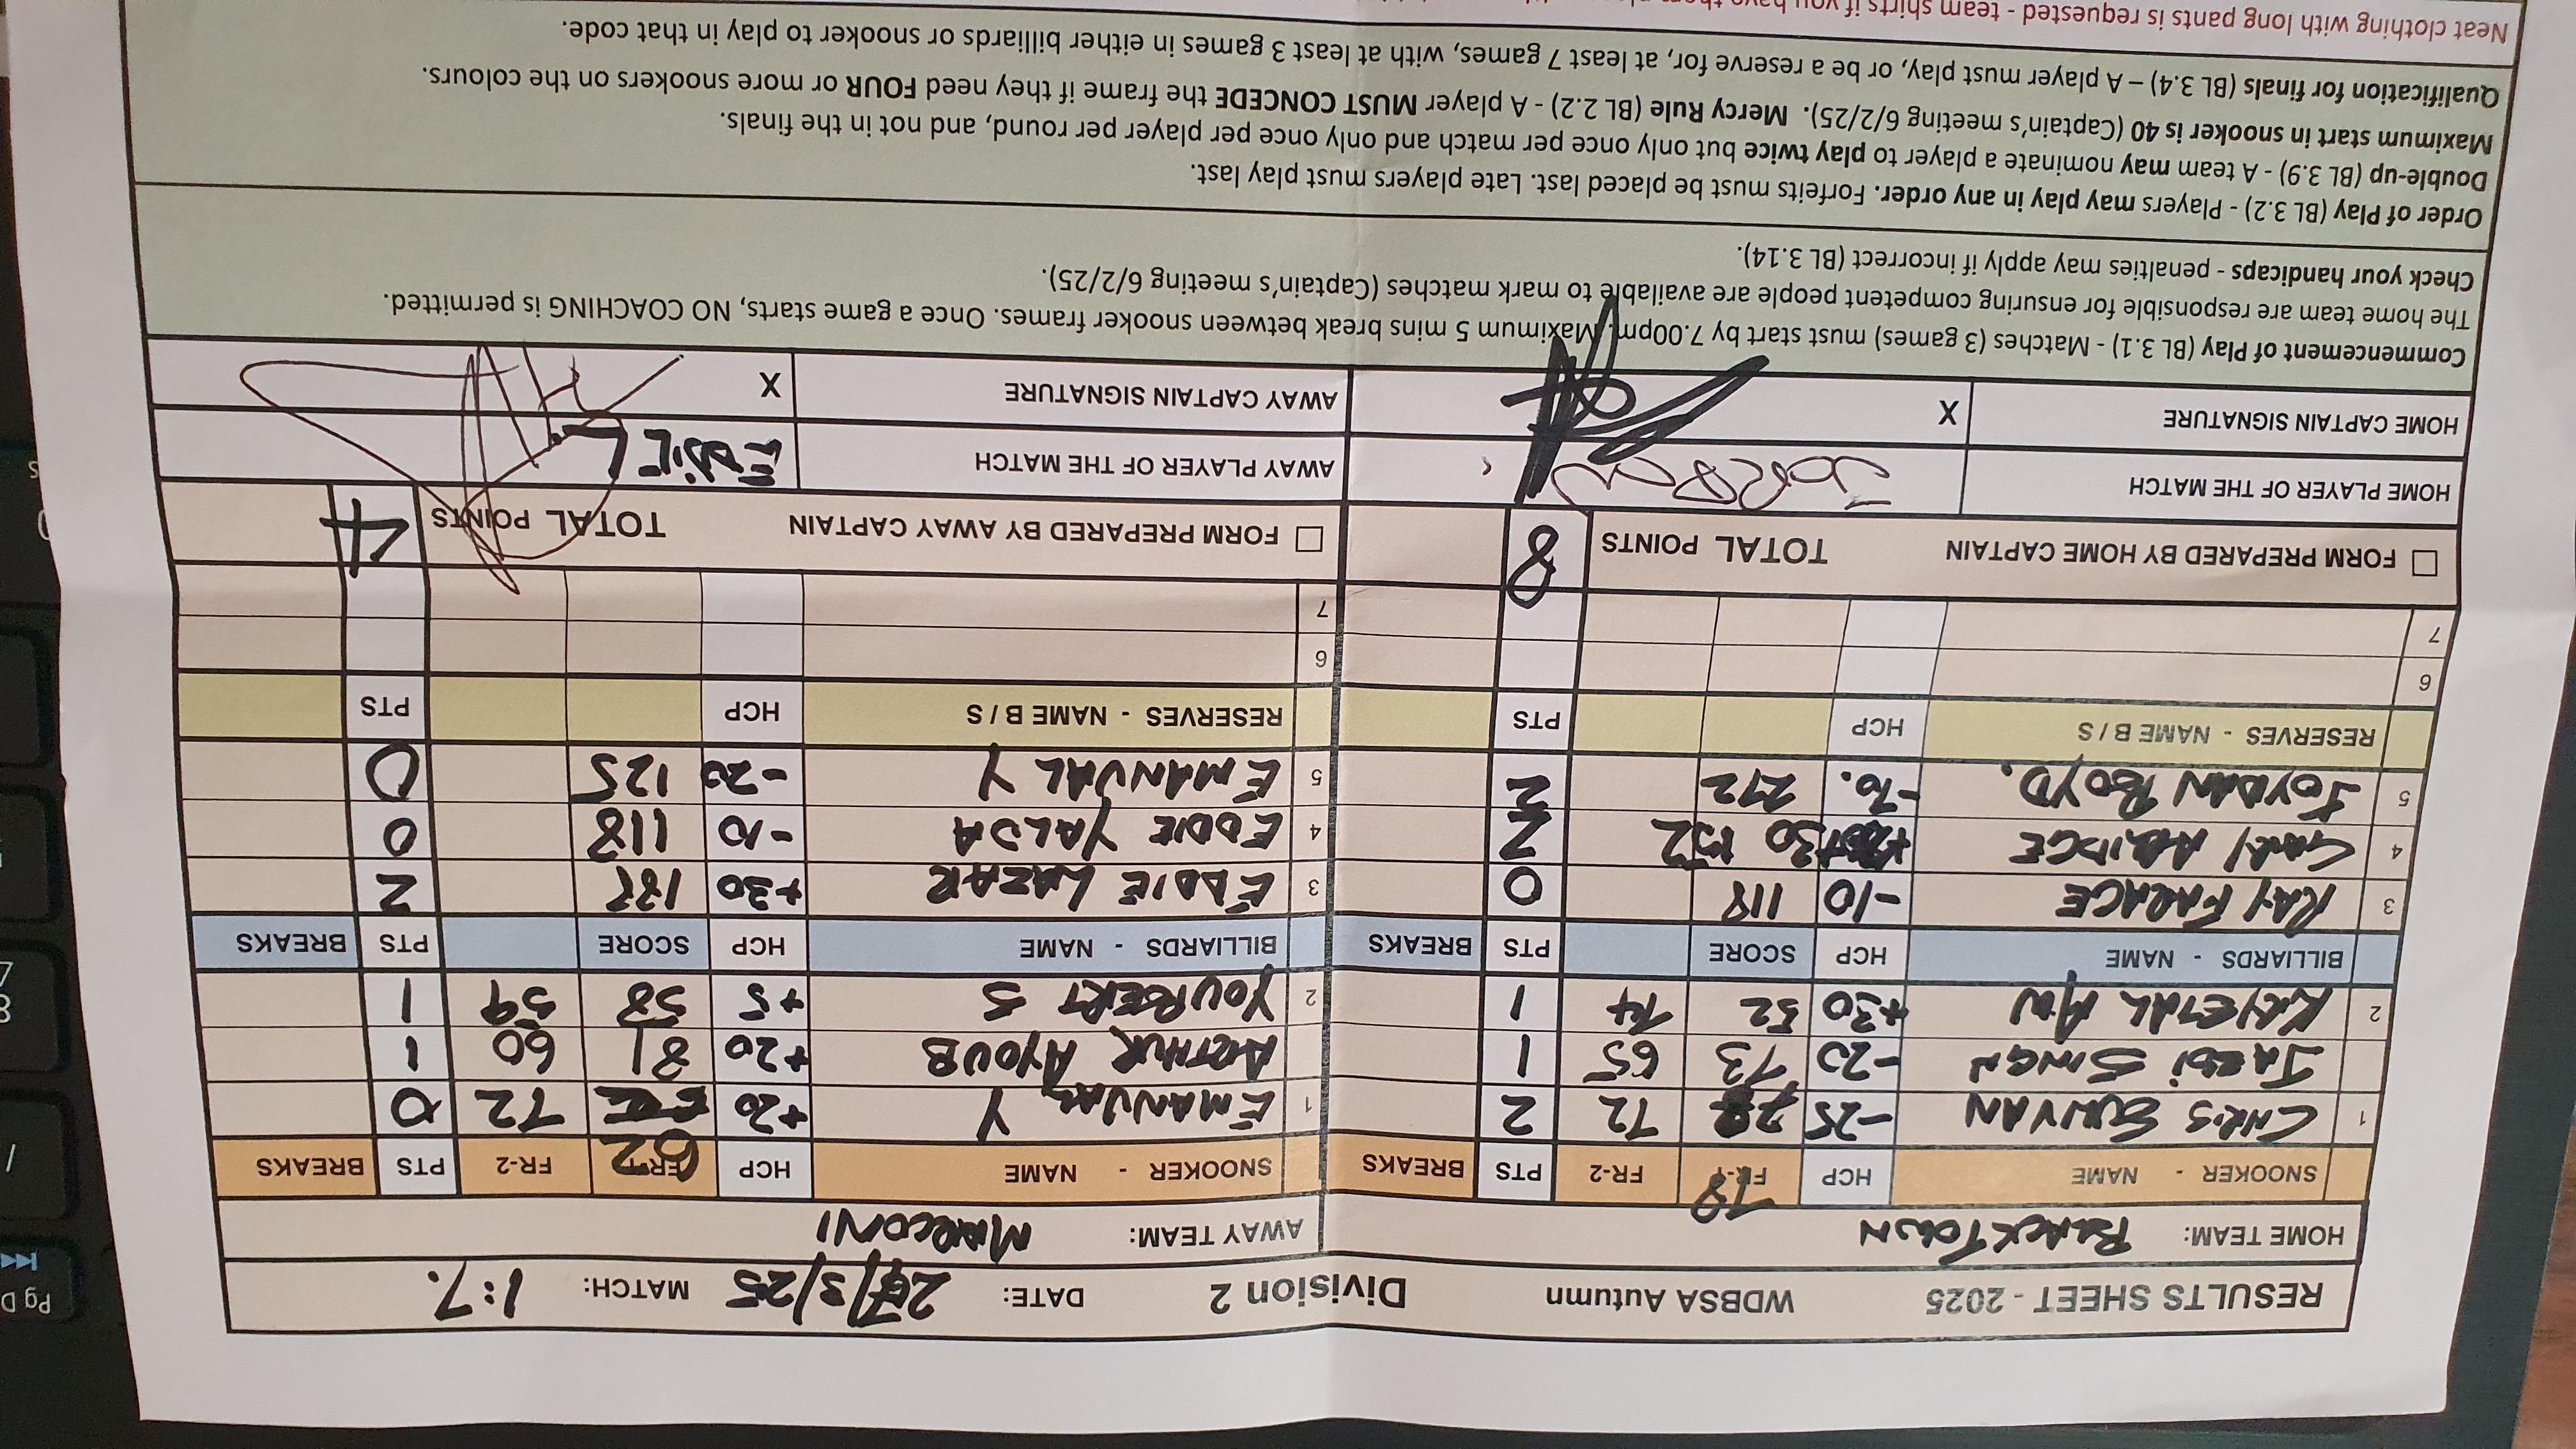 RESULTS SHEET - 2025 WDBSA Autumn Division 2 DATE: 27/3/25 MATCH: 1:7.
HOME TEAM: BLACKTOWN AWAY TEAM: MARCONI
SNOOKER - NAME HCP FR-1 FR-2 PTS BREAKS SNOOKER - NAME HCP FR-2 PTS BREAKS
1 CHRIS -25 78 72 2 1 EMANUAL Y +20 62 72 0
JASDI SINGH -20 73 65 1 ARTHUR AYOUB +20 81 60 1
2 +30 52 74 1 2 YOURBERT S +5 58 59 1
BILLIARDS - NAME HCP SCORE PTS BREAKS BILLIARDS - NAME HCP SCORE PTS BREAKS
3 RAY FARAGE -10 118 0 3 EDDIE LAZAR +30 2
4 GARY +30 2 4 EDDIE YALDA -10 118 0
5 JOYDAN BOYD. -70. 272 2 5 EMANUAL Y -20 125 0
RESERVES - NAME B / S HCP PTS RESERVES - NAME B / S HCP PTS
6 6
7 7
FORM PREPARED BY HOME CAPTAIN TOTAL POINTS 8 FORM PREPARED BY AWAY CAPTAIN TOTAL POINTS 4
HOME PLAYER OF THE MATCH JORDAN AWAY PLAYER OF THE MATCH EDDIE L
HOME CAPTAIN SIGNATURE X AWAY CAPTAIN SIGNATURE X
Commencement of Play (BL 3.1) - Matches (3 games) must start by 7.00pm. Maximum 5 mins break between snooker frames. Once a game starts, NO COACHING is permitted.
The home team are responsible for ensuring competent people are available to mark matches (Captain's meeting 6/2/25).
Check your handicaps - penalties may apply if incorrect (BL 3.14).
Order of Play (BL 3.2) - Players may play in any order. Forfeits must be placed last. Late players must play last.
Double-up (BL 3.9) - A team may nominate a player to play twice but only once per match and only once per player per round, and not in the finals.
Maximum start in snooker is 40 (Captain's meeting 6/2/25). Mercy Rule (BL 2.2) - A player MUST CONCEDE the frame if they need FOUR or more snookers on the colours.
Qualification for finals (BL 3.4) – A player must play, or be a reserve for, at least 7 games, with at least 3 games in either billiards or snooker to play in that code.
Neat clothing with long pants is requested - team shirts if you have them
Pg D
7
8
/